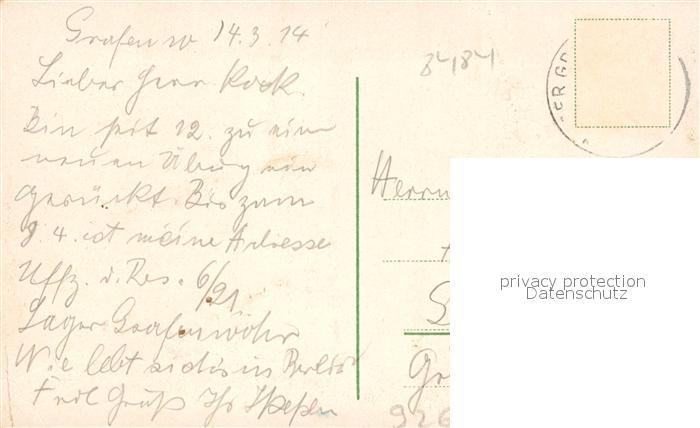 Grafenw 14.3.14
8484
Lieber Herr Kock.
Bin seit 12. zu eine
neuen Übung ein
gerückt. Bis zum
9. 4. ist meine Adresse
Uffz. d. Res. 6/21
Lager Grafenwöhr
Wie lebt sichs in Berlin
Grüß Ihr
Herrn
privacy protection
Datenschutz
926